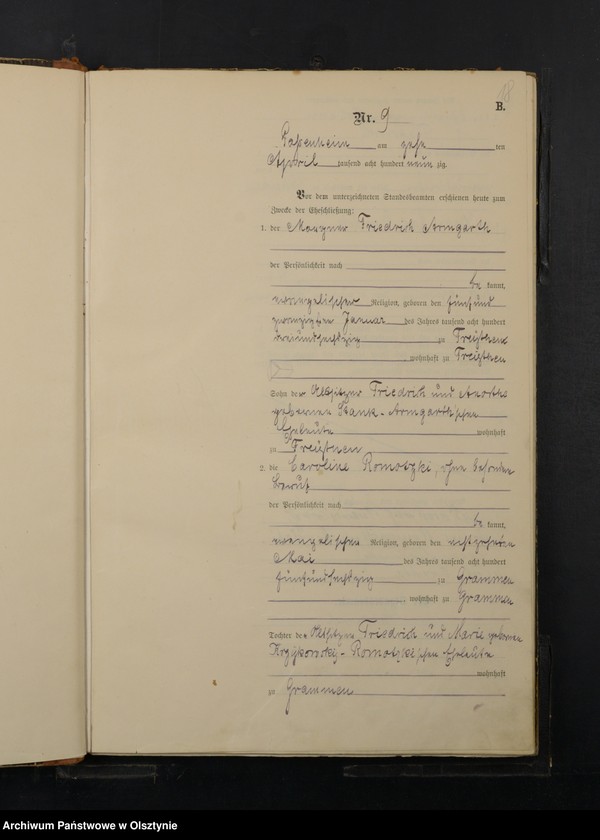 18
B.
Nr. 9
Passenheim am zehn ten
April tausend acht hundert neun zig.
Vor dem unterzeichneten Standesbeamten erschienen heute zum
Zwecke der Eheschließung:
1. der Friedrich Armgarth
der Persönlichkeit nach
be kannt,
evangelischer Religion, geboren den fünfund
zwanzigsten Januar des Jahres tausend acht hundert
dreiundsechszig zu
, wohnhaft zu
Sohn der Altsitzer Friedrich und
geborenen Armgarthschen
Eheleute wohnhaft
zu
2. die Caroline Romotzki, ohne besonderen
Beruf
der Persönlichkeit nach
be kannt,
evangelischen Religion, geboren den achtzehnten
Mai des Jahres tausend acht hundert
fünfundsechszig zu Grammen
, wohnhaft zu Grammen
Tochter der Altsitzer Friedrich und Marie geborenen
Romotzkischen Eheleute
wohnhaft
zu Grammen
Archiwum Państwowe w Olsztynie